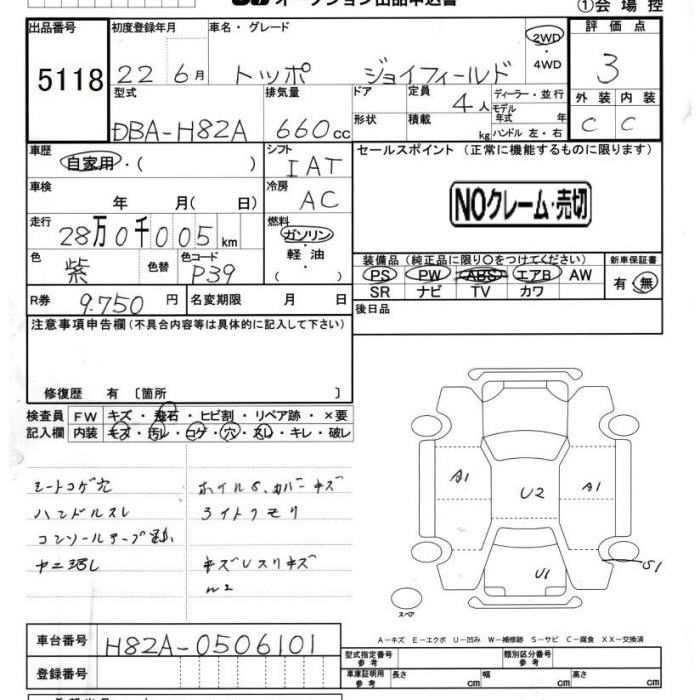 オークション出品申込書
①会場控
出品番号 初度登録年月 車名・グレード 2WD ・4WD 評価点
5118 22年 6月 トッポ ジョイフィールド 3
型式 排気量 ドア 定員 4人 ディーラー・並行 外装 内装
DBA-H82A 660cc 形状 積載 kg モデル年式 年 ハンドル 左・右 C C
車歴 自家用・( ) シフト IAT セールスポイント (正常に機能するものに限ります)
車検 年 月( 日) 冷房 AC
NOクレーム・売切
走行 28万0千005km 燃料 ガソリン・軽油・( )
色 紫 色替 色コード P39
装備品 (純正品に限り○をつけてください) 新車保証書
PS PW ABS エアB AW 有・無
SR ナビ TV カワ
R券 9.750円 名変期限 月 日 後日品
注意事項申告欄 (不具合内容等は具体的に記入して下さい)
修復歴 有 〔箇所 〕
検査員 FW キズ・飛石・ヒビ割・リペア跡・×要
記入欄 内装 キズ・汚レ・コゲ・穴・スレ・キレ・破レ
シートコゲ穴 ホイールS、カバーキズ
ハンドルスレ ライトクモリ
コンソールテープ跡
ヤニヨゴレ キズUスリキズ
W2
A1 U2 A1
U1 S1
スペア
A-キズ E-エクボ U-凹み W-補修跡 S-サビ C-腐食 XX-交換済
車台番号 H82A-0506101
型式指定番号 参考 類別区分番号 参考
登録番号
車庫証明用 参考 長さ cm 幅 cm 高さ cm